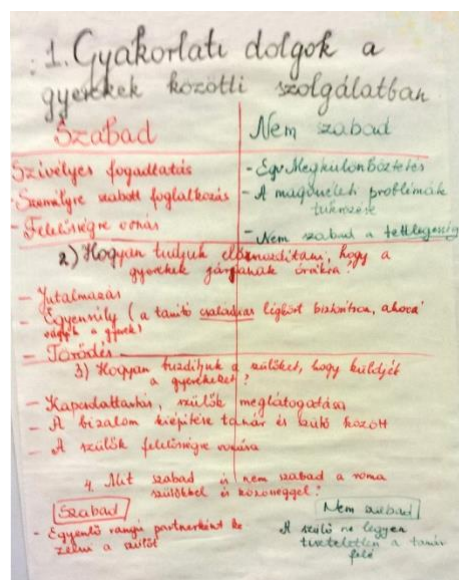 1. Gyakorlati dolgok a
gyerekek közötti szolgálatban
Szabad
Nem szabad
Szívélyes fogadtatás
- Egy Megkülönböztetés
- Személyre szabott foglalkozás
- A magánéleti problémák
tükrözése
- Felelősségre vonás
- Nem szabad a tettlegesség
2) Hogyan tudjuk előmozdítani, hogy a
gyerekek járjanak órákra?
- Jutalmazás
- Egyéniség (a tanító családias légkört biztosítson, ahová
vágyik a gyerek)
- Törődés
3) Hogyan buzdítjuk a szülőket, hogy küldjék
a gyerekeket?
- Kapcsolattartás, szülők meglátogatása
- A bizalom kiépítése tanár és szülő között
- A szülők felelősségre vonása
4. Mit szabad és nem szabad a roma
szülőkkel és közösséggel?
Szabad
Nem szabad
- Egyenlő rangú partnerként ke
zelni a szülőt
A szülő ne legyen
tiszteletlen a tanár
felé